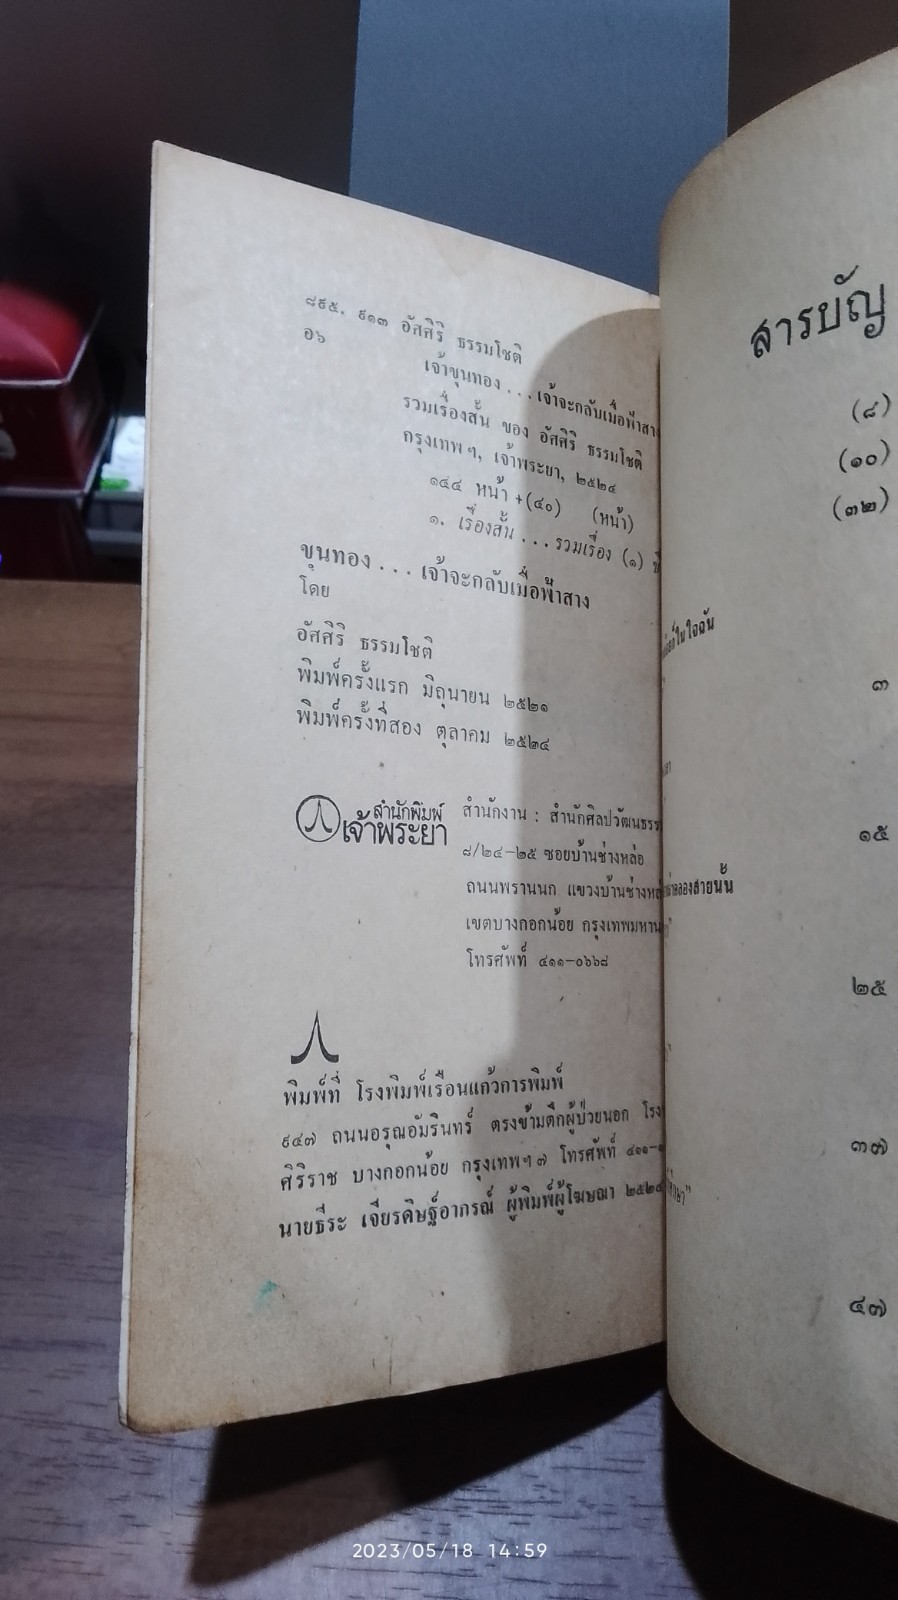 ๘๙๕. ๙๑๓ อัศศิริ ธรรมโชติ
อ๖
เจ้าขุนทอง . . . เจ้าจะกลับเมื่อฟ้าสาง
รวมเรื่องสั้น ของ อัศศิริ ธรรมโชติ
กรุงเทพฯ, เจ้าพระยา, ๒๕๒๔
๑๔๔ หน้า +(๔๐) (หน้า)
๑. เรื่องสั้น . . . รวมเรื่อง (๑)
ขุนทอง . . . เจ้าจะกลับเมื่อฟ้าสาง
โดย
อัศศิริ ธรรมโชติ
พิมพ์ครั้งแรก มิถุนายน ๒๕๒๑
พิมพ์ครั้งที่สอง ตุลาคม ๒๕๒๔
สำนักพิมพ์
เจ้าพระยา
สำนักงาน : สำนักศิลปวัฒนธรร
๘/๒๔-๒๕ ซอยบ้านช่างหล่อ
ถนนพรานนก แขวงบ้านช่างหล่
เขตบางกอกน้อย กรุงเทพมหาน
โทรศัพท์ ๔๑๑-๐๖๖๘
พิมพ์ที่ โรงพิมพ์เรือนแก้วการพิมพ์
๙๔๗ ถนนอรุณอัมรินทร์ ตรงข้ามตึกผู้ป่วยนอก โรง
ศิริราช บางกอกน้อย กรุงเทพฯ ๗ โทรศัพท์ ๔๑๑-
นายธีระ เจียรดิษฐ์อาภรณ์ ผู้พิมพ์ผู้โฆษณา ๒๕๒๔
สารบัญ
(๘)
(๑๐)
(๓๒)
ในใจฉัน
๓
๑๕
คลองสายนั้น
๒๕
๓๗
๔๗
2023/05/18 14:59